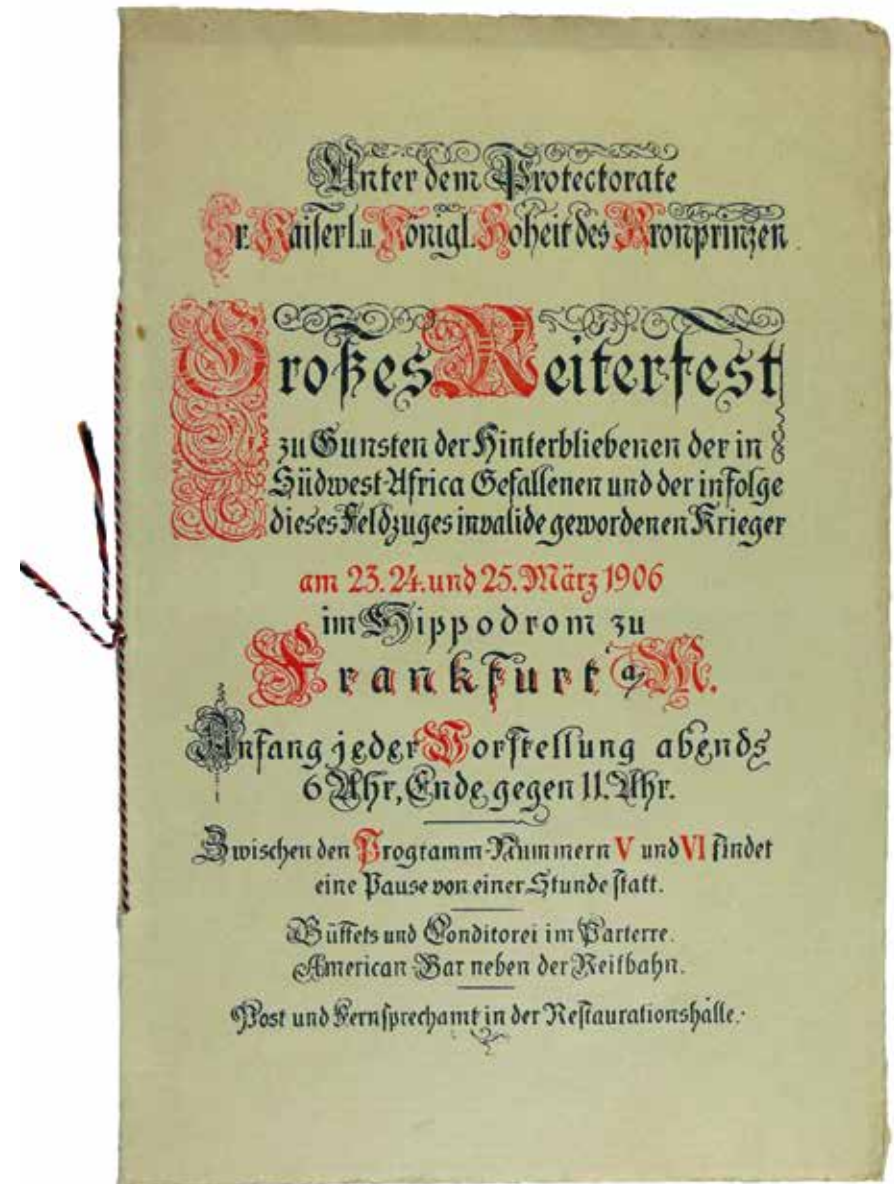 Unter dem Protectorate
Sr. Kaiserl. u. Königl. Hoheit des Kronprinzen.
Großes Reiterfest
zu Gunsten der Hinterbliebenen der in
Südwest-Africa Gefallenen und der infolge
dieses Feldzuges invalide gewordenen Krieger
am 23. 24. und 25. März 1906
im Hippodrom zu
Frankfurt a/M.
Anfang jeder Vorstellung abends
6 Uhr, Ende gegen 11. Uhr.
Zwischen den Programm-Nummern V und VI findet
eine Pause von einer Stunde statt.
Büffets und Conditorei im Parterre.
American-Bar neben der Reitbahn.
Post und Fernsprechamt in der Restaurationshalle.